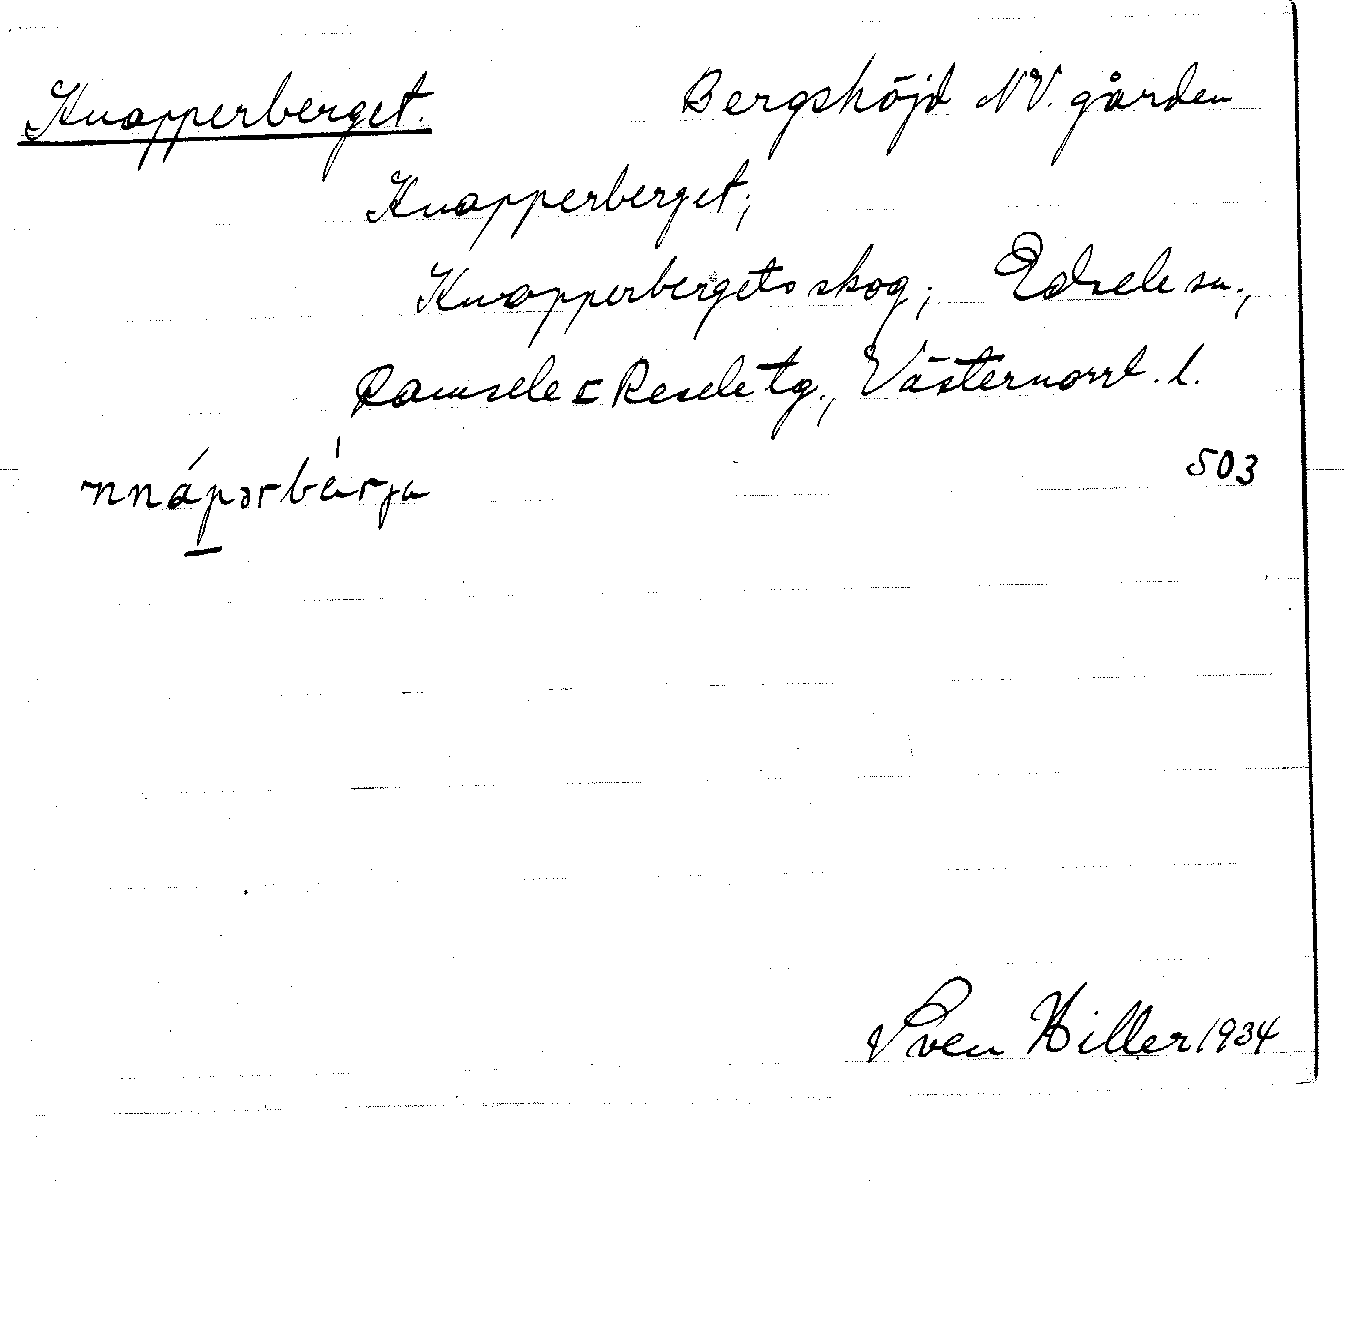 Knapperberget. Bergshöjd NV. gården
Knapperberget;
Knapperbergets skog; Edsele sn.,
Ramsele o Resele tg., Västernorrl. l.
503
Sven Hiller 1934